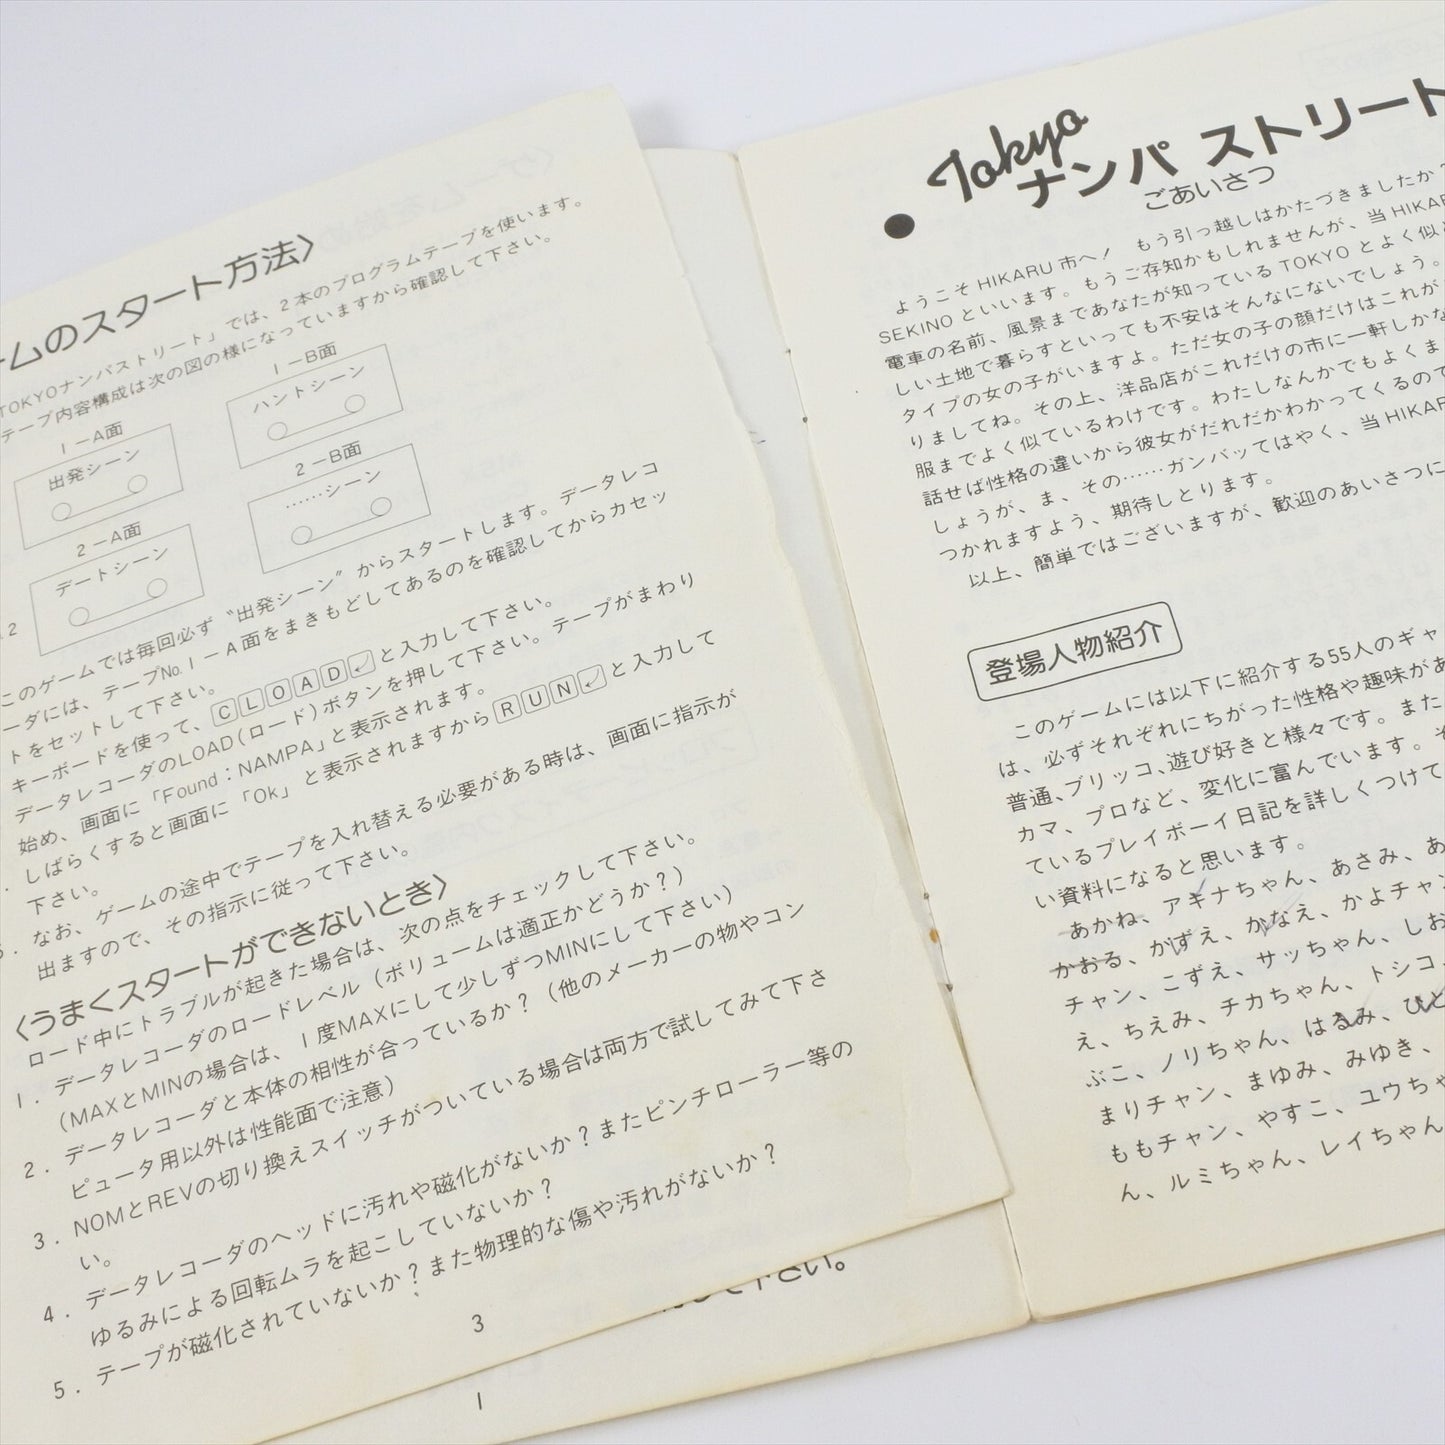 ームのスタート方法〉
TOKYOナンパストリート」では、2本のプログラムテープを使います。
テープ内容構成は次の図の様になっていますから確認して下さい。
1－A面
出発シーン
1－B面
ハントシーン
2－A面
デートシーン
2－B面
……シーン
このゲームでは毎回必ず〝出発シーン〟からスタートします。データレコ
ーダには、テープNo.1－A面をまきもどしてあるのを確認してからカセッ
トをセットして下さい。
キーボードを使って、CLOAD↲と入力して下さい。
データレコーダのLOAD(ロード)ボタンを押して下さい。テープがまわり
始め、画面に「Found：NAMPA」と表示されます。
しばらくすると画面に「Ok」と表示されますからRUN↲と入力して
下さい。
なお、ゲームの途中でテープを入れ替える必要がある時は、画面に指示が
出ますので、その指示に従って下さい。
〈うまくスタートができないとき〉
ロード中にトラブルが起きた場合は、次の点をチェックして下さい。
1．データレコーダのロードレベル（ボリュームは適正かどうか？）
（MAXとMINの場合は、1度MAXにして少しずつMINにして下さい）
2．データレコーダと本体の相性が合っているか？（他のメーカーの物やコン
ピュータ用以外は性能面で注意）
3．NOMとREVの切り換えスイッチがついている場合は両方で試してみて下さ
い。
4．データレコーダのヘッドに汚れや磁化がないか？またピンチローラー等の
ゆるみによる回転ムラを起こしていないか？
5．テープが磁化されていないか？また物理的な傷や汚れがないか？
3
下さい。
1
Tokyo
ナンパ ストリート
● ごあいさつ
ようこそHIKARU市へ！ もう引っ越しはかたづきましたか？
SEKINOといいます。もうご存知かもしれませんが、当HIKAR
電車の名前、風景まであなたが知っているTOKYOとよく似
しい土地で暮らすといっても不安はそんなにないでしょう。
タイプの女の子がいますよ。ただ女の子の顔だけはこれが
りましてね。その上、洋品店がこれだけの市に一軒しかな
服までよく似ているわけです。わたしなんかでもよくま
話せば性格の違いから彼女がだれだかわかってくるので
しょうが、ま、その……ガンバッてはやく、当HIKAR
つかれますよう、期待しとります。
以上、簡単ではございますが、歓迎のあいさつに
登場人物紹介
このゲームには以下に紹介する55人のギャ
は、必ずそれぞれにちがった性格や趣味があ
普通、ブリッコ、遊び好きと様々です。また
カマ、プロなど、変化に富んでいます。そ
ているプレイボーイ日記を詳しくつけて
い資料になると思います。
あかね、アキナちゃん、あさみ、あ
かおる、かずえ、かなえ、かよチャン
チャン、こずえ、サッちゃん、しお
え、ちえみ、チカちゃん、トシコ、
ぶこ、ノリちゃん、はるみ、ひと
まりチャン、まゆみ、みゆき、
ももチャン、やすこ、ユウちゃ
ん、ルミちゃん、レイちゃん